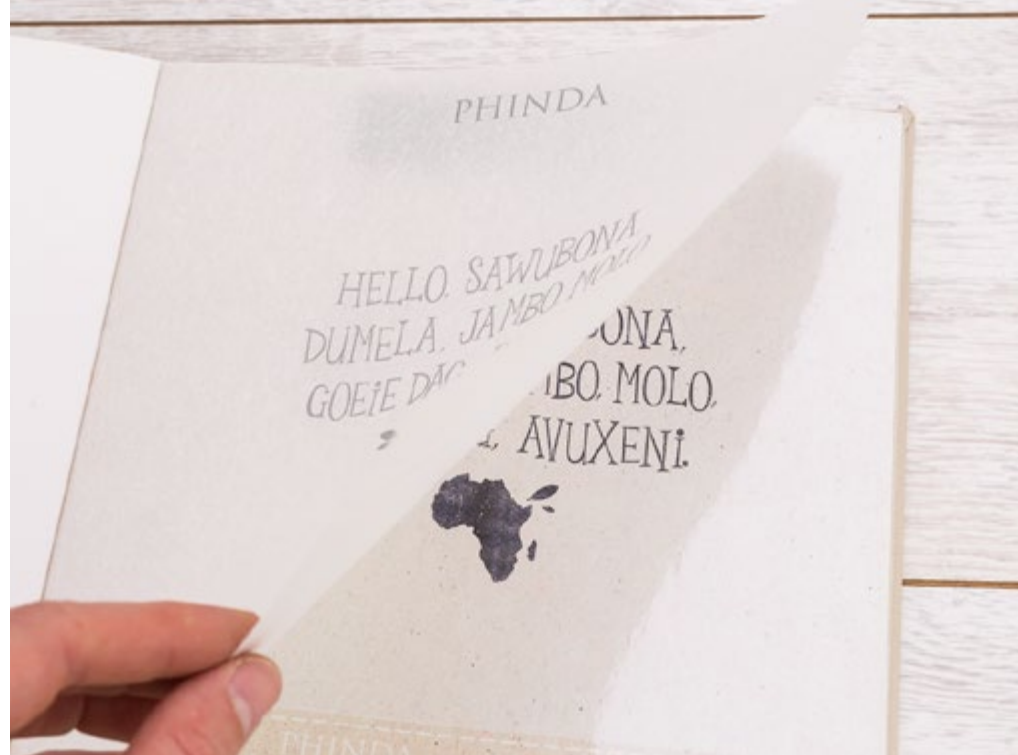 PHINDA
HELLO. SAWUBONA
DUMELA, JAMBO MOLO
GOEIE DAG
ONA,
MBO, MOLO,
AVUXENI.
PHINDA